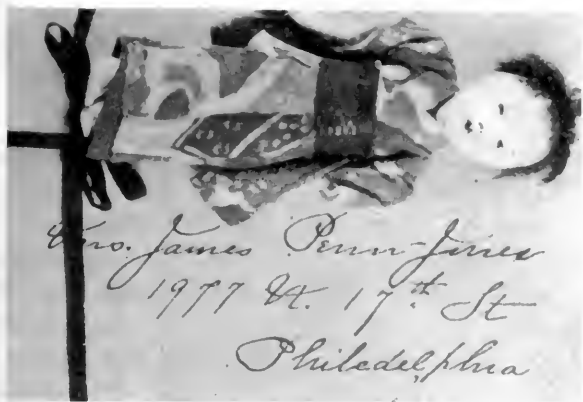 Mrs. James Penn-Jines
1977 W. 17th St
Philedelphia